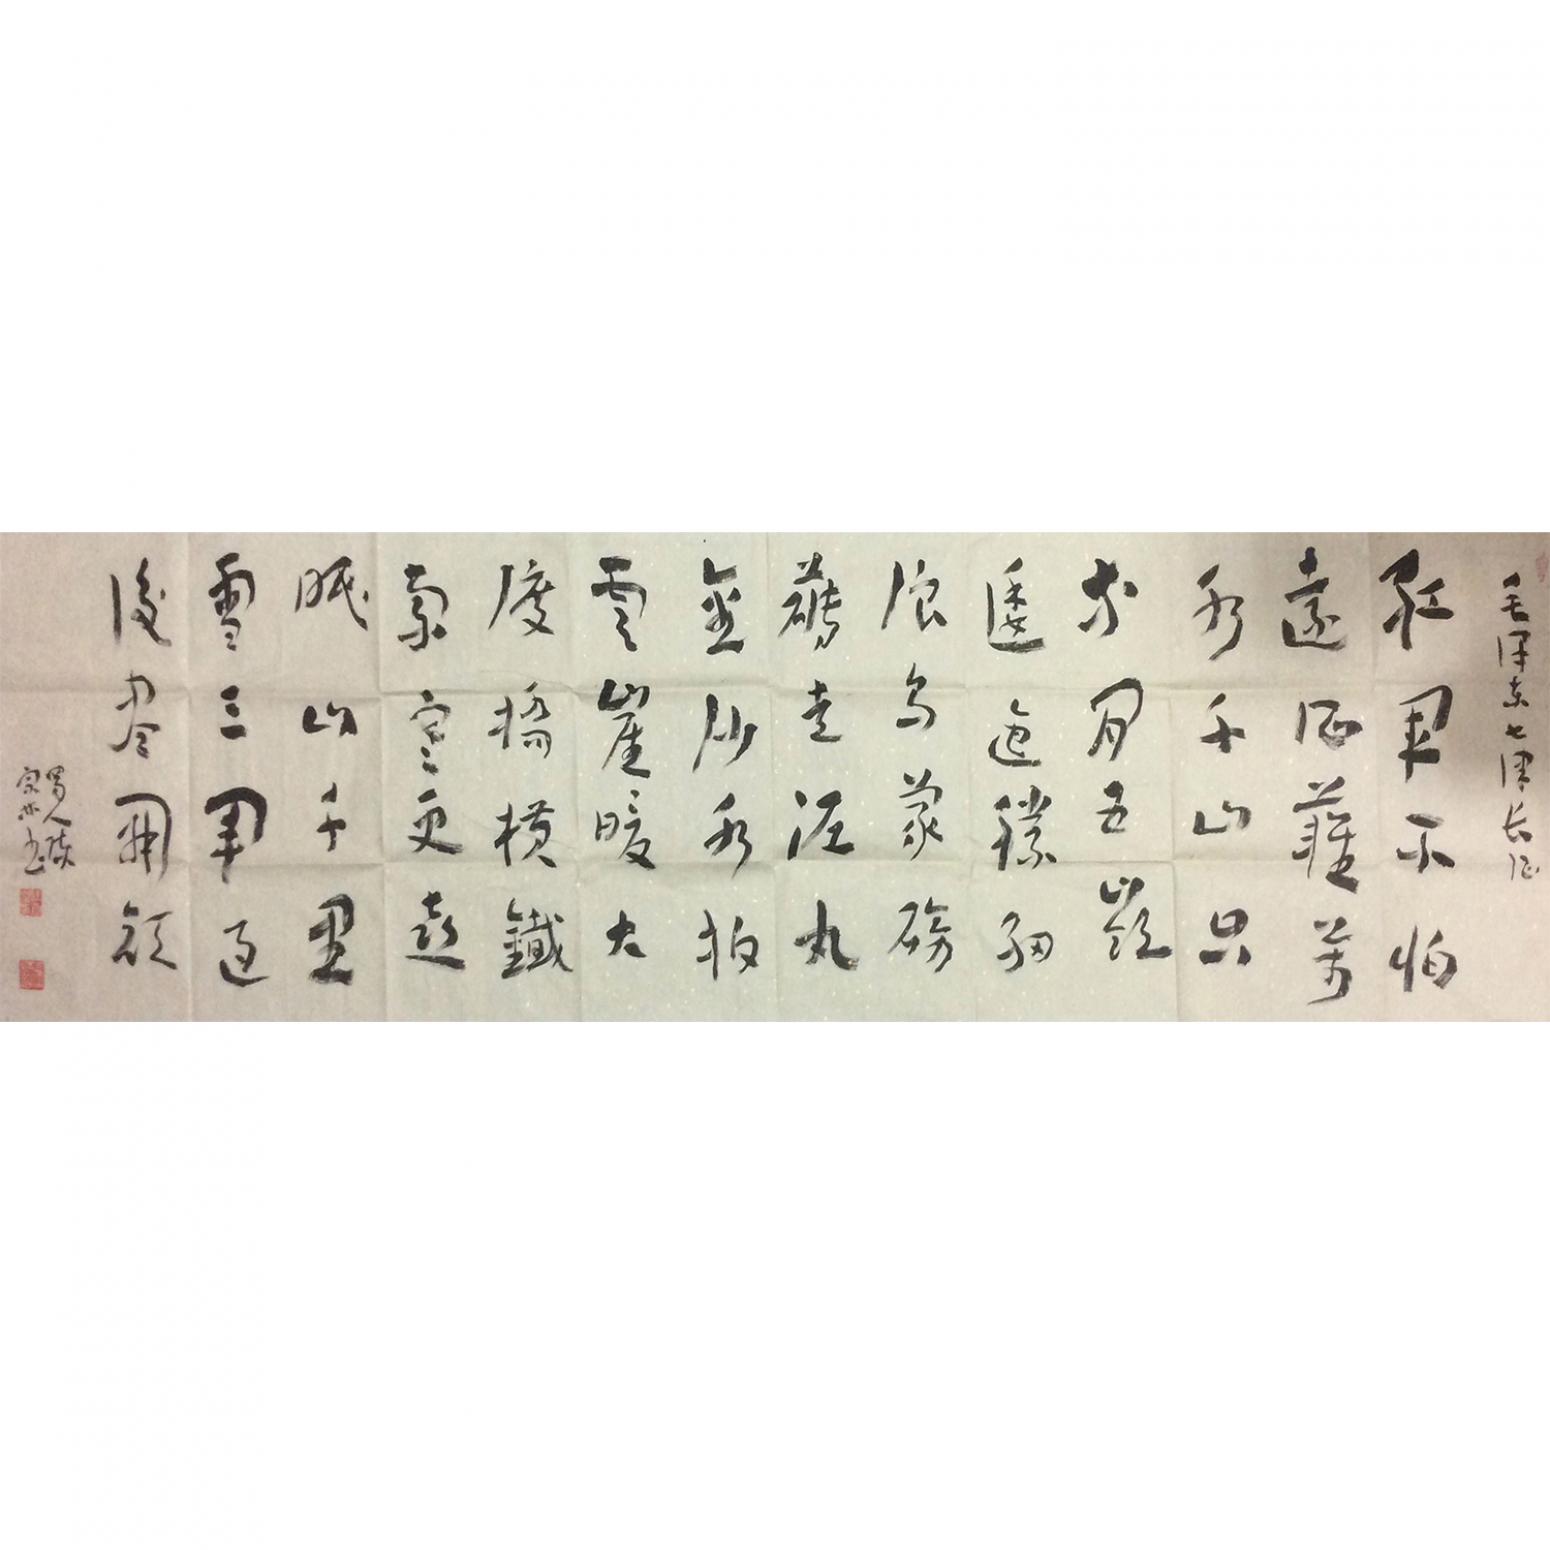 毛泽东七律长征
紅軍不怕
遠征難萬
水千山只
等閒五嶺
逶迤騰細
浪烏蒙磅
礴走泥丸
金沙水拍
雲崖暖大
渡橋橫鐵
索寒更喜
岷山千里
雪三軍過
後盡開顏
蜀人
书